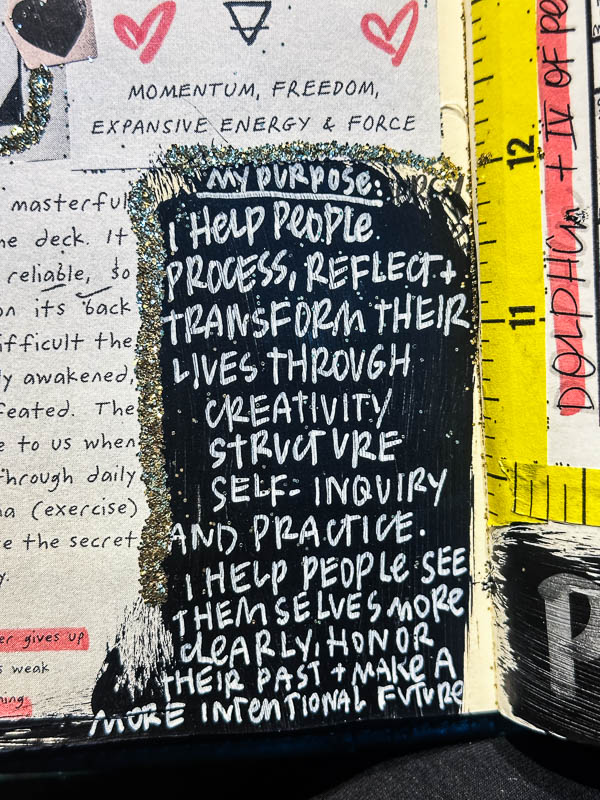 MOMENTUM, FREEDOM,
EXPANSIVE ENERGY & FORCE
masterful
deck. It
reliable, so
on its back
difficult the
awakened,
The
to us when
Through daily
(exercise)
the secret
gives up
weak
MY PURPOSE:
I HELP PEOPLE
PROCESS, REFLECT +
TRANSFORM THEIR
LIVES THROUGH
CREATIVITY
STRUCTURE
SELF-INQUIRY
AND PRACTICE.
I HELP PEOPLE SEE
THEMSELVES MORE
CLEARLY, HONOR
THEIR PAST + MAKE A
MORE INTENTIONAL FUTURE
12
11
DOLPHIN + IV OF